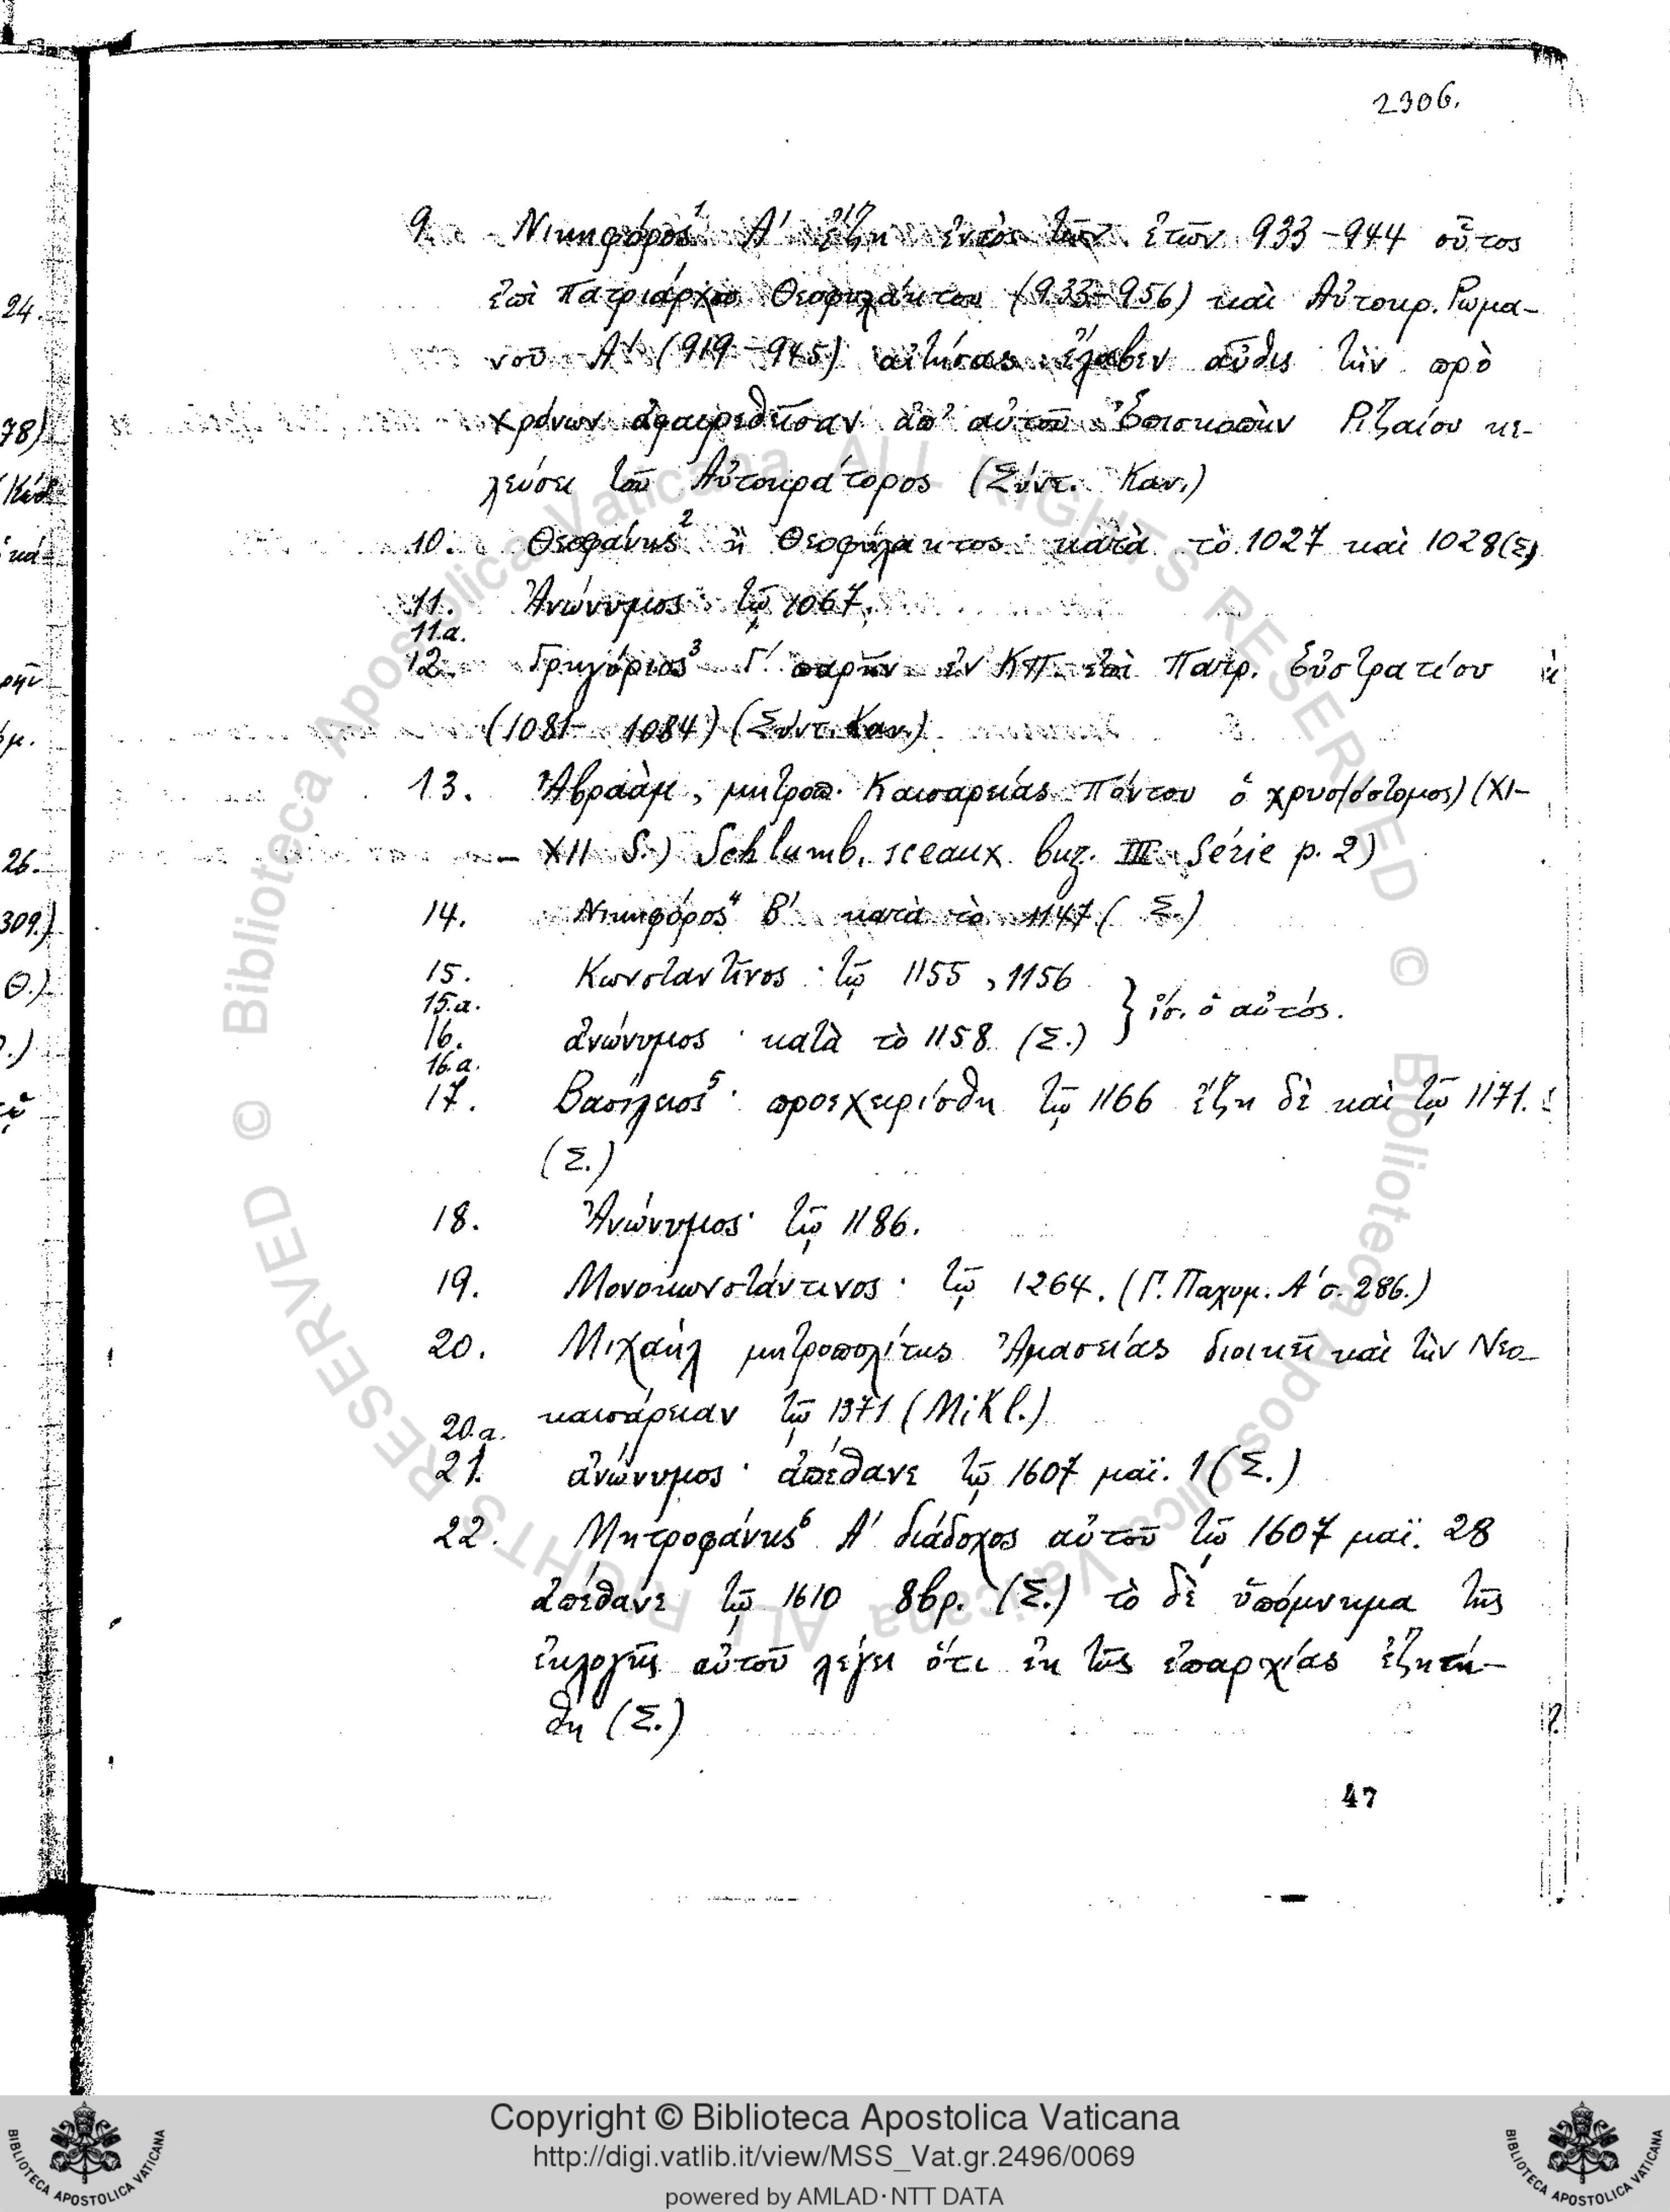 2306.
9. Νικηφόρος¹ Α′ ἔζη ἐντὸς τῶν ἐτῶν 933-944 οὗτος
ἐπὶ Πατριάρχου Θεοφυλάκτου (933-956) καὶ Αὐτοκρ. Ρωμα-
νοῦ Α′ (919-945) αἰτήσας ἔλαβεν αὖθις τὴν πρὸ
χρόνων ἀφαιρεθεῖσαν ἀπ' αὐτοῦ Ἐπισκοπὴν Ριζαίου κε-
λεύσει τοῦ Αὐτοκράτορος (Σύντ. Καν.)
10. Θεοφάνης² ἢ Θεοφύλακτος· κατὰ τὸ 1027 καὶ 1028 (Σ)
11. Ἀνώνυμος· τῷ 1067.
11.a.
12. Γρηγόριος³ Γ′. παρῆν ἐν ΚΠ. ἐπὶ Πατρ. Εὐστρατίου
(1081- 1084) (Σύντ. Καν.)
13. Ἀβραὰμ, μητροπ. Καισαρείας Πόντου ὁ χρυσ(όστομος) (XI-
- XII S.) Schlumb. sceaux byz. III Série p. 2)
14. Νικηφόρος⁴ Β′ κατὰ τὸ 1147 (Σ.)
15. Κωνσταντῖνος· τῷ 1155, 1156
15.a.
} ἴσ. ὁ αὐτός.
16. ἀνώνυμος· κατὰ τὸ 1158 (Σ.)
16.a.
17. Βασίλειος⁵· προεχειρίσθη τῷ 1166 ἔζη δὲ καὶ τῷ 1171.
(Σ.)
18. Ἀνώνυμος· τῷ 1186.
19. Μονοκωνστάντινος· τῷ 1264. (Γ. Παχυμ. Α′ σ. 286.)
20. Μιχαὴλ μητροπολίτης Ἀμασείας διοικεῖ καὶ τὴν Νεο-
καισάρειαν τῷ 1371 (Mikl.)
20.a.
21. ἀνώνυμος· ἀπέθανε τῷ 1607 μαϊ. 1 (Σ.)
22. Μητροφάνης⁶ Α′ διάδοχος αὐτοῦ τῷ 1607 μαϊ. 28
ἀπέθανε τῷ 1610 8βρ. (Σ.) τὸ δὲ ὑπόμνημα τῆς
ἐκλογῆς αὐτοῦ λέγει ὅτι ἐκ τῆς ἐπαρχίας ἐζητή-
θη (Σ.)
47
24.
78)
26.
309.)
Θ.)
© Biblioteca Apostolica Vaticana ALL RIGHTS RESERVED © Biblioteca Apostolica Vaticana ALL RIGHTS RESERVED
Copyright © Biblioteca Apostolica Vaticana
http://digi.vatlib.it/view/MSS_Vat.gr.2496/0069
powered by AMLAD·NTT DATA
BIBLIOTECA APOSTOLICA VATICANA
BIBLIOTECA APOSTOLICA VATICANA